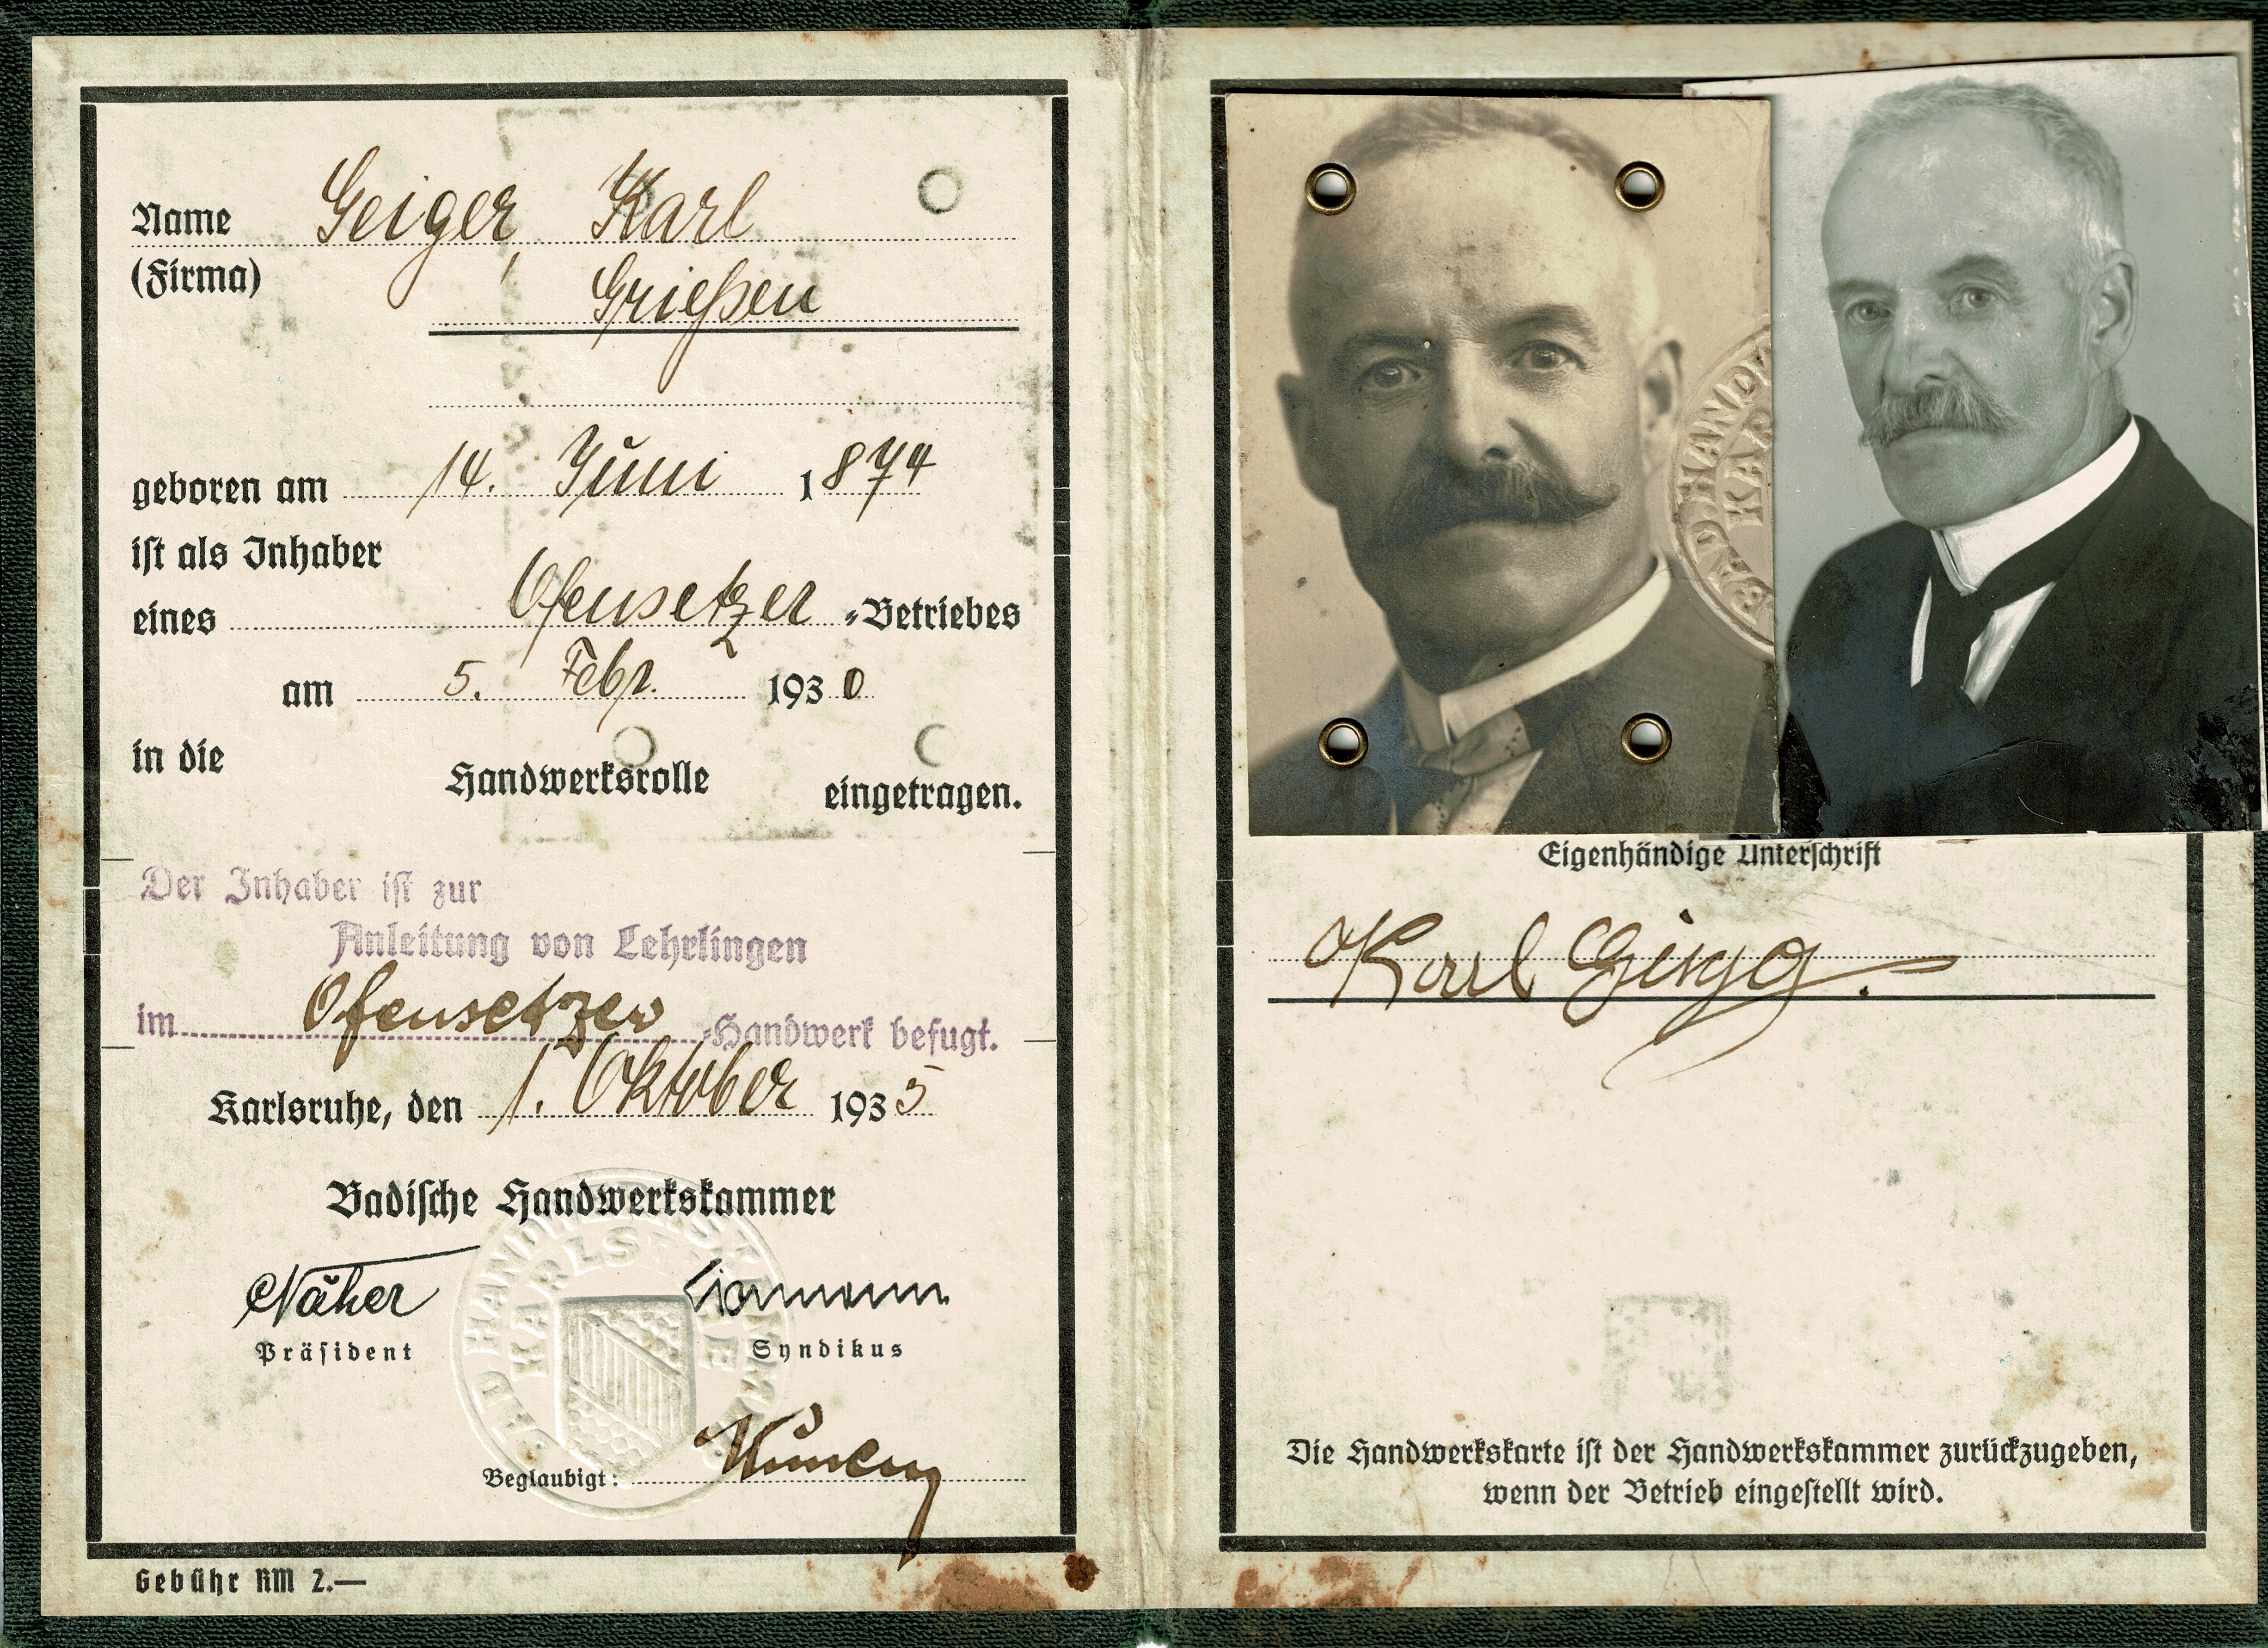 Name Geiger, Karl
(Firma) Grießen
geboren am 14. Juni 1874
ist als Inhaber
eines Ofensetzer-Betriebes
am 5. Febr. 1930
in die Handwerksrolle eingetragen.
Der Inhaber ist zur
Anleitung von Lehrlingen
im Ofensetzer-Handwerk befugt.
Karlsruhe, den 1. Oktober 1935
Badische Handwerkskammer
Näher
Präsident Syndikus
Beglaubigt:
Gebühr RM 2.—
BAD. HANDW
KAR
Eigenhändige Unterschrift
Karl Geiger.
Die Handwerkskarte ist der Handwerkskammer zurückzugeben,
wenn der Betrieb eingestellt wird.